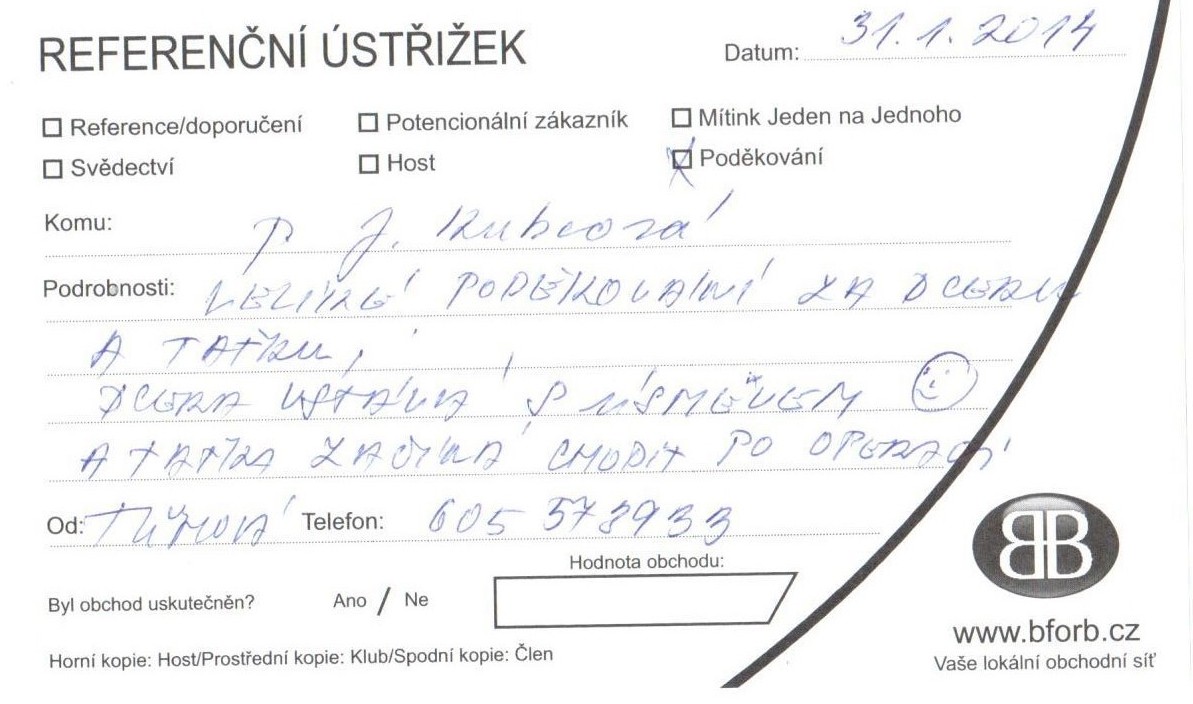 REFERENČNÍ ÚSTŘIŽEK
Datum: 31.1.2014
Reference/doporučení Potencionální zákazník Mítink Jeden na Jednoho
Svědectví Host Poděkování
Komu: P J.
Podrobnosti: VELIKÉ PODĚKOVÁNÍ ZA DCERU
A TAŤKU,
DCERA VSTÁVÁ S ÚSMĚVEM
A TAŤKA ZAČÍNÁ CHODIT PO OPERACI
Od: Telefon: 605 573933
Hodnota obchodu:
Byl obchod uskutečněn? Ano / Ne
BB
www.bforb.cz
Horní kopie: Host/Prostřední kopie: Klub/Spodní kopie: Člen
Vaše lokální obchodní síť